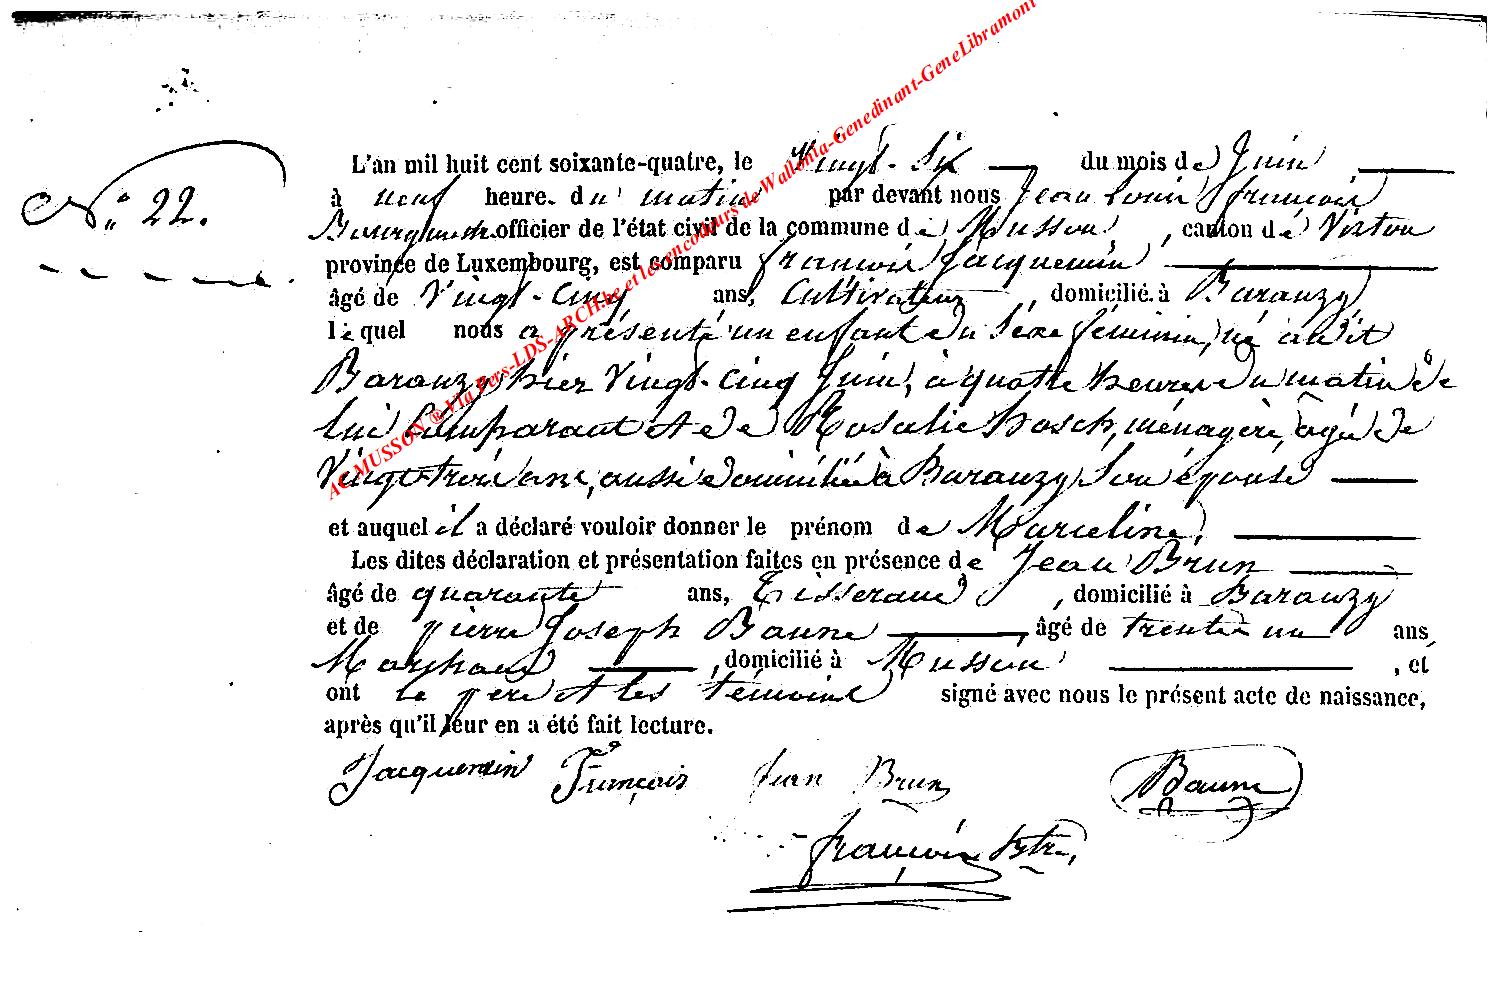 N.º 22.
L'an mil huit cent soixante-quatre, le Vingt-Six du mois de Juin
à neuf heure. du matin par devant nous Jean Louis françois
officier de l'état civil de la commune de Musson, canton de Virton
province de Luxembourg, est comparu françois Jacquemin
âgé de Vingt-Cinq ans, Cultivateur, domicilié à Baranzy
lequel nous a présenté un enfant du Sexe féminin, né audit
Baranzy hier Vingt-Cinq Juin, à quatre heures du matin de
lui Comparant et de Rosalie hosch, ménagère, agée de
Vingt trois ans, aussi domiciliée à Baranzy Son épouse
et auquel il a déclaré vouloir donner le prénom de Marceline,
Les dites déclaration et présentation faites en présence de Jean Brun
âgé de quarante ans, Tisserand, domicilié à Baranzy
et de pierre Joseph Baune, âgé de trente un ans,
Marchand, domicilié à Musson, et
ont le père et les témoins signé avec nous le présent acte de naissance,
après qu'il leur en a été fait lecture.
Jacquemin François Jean Brun Baune
françois
ACMUSSON ® Via Pers-LDS-ARCH.be et les encodeurs de Wallonia-Genedinant-GeneLibramont